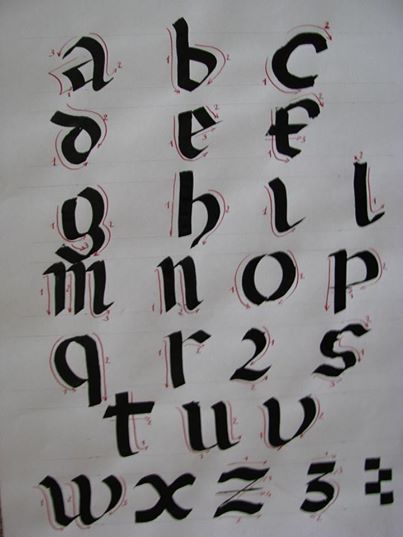 a b c
d e f
g h i l
m n o p
q r 2 s
t u v
w x z 3